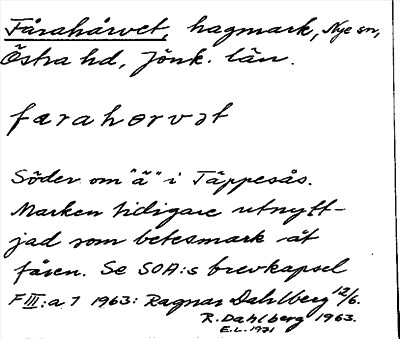 Fårahårvet, hagmark, Nye sn,
Östra hd, Jönk. län.
farahorvət
Söder om "ä" i Täppesås.
Marken tidigare utnytt-
jad som betesmark åt
fåren. Se SOA:s brevkapsel
F III:a 7 1963: Ragnar Dahlberg 12/6.
R. Dahlberg 1963.
E.L. 1971